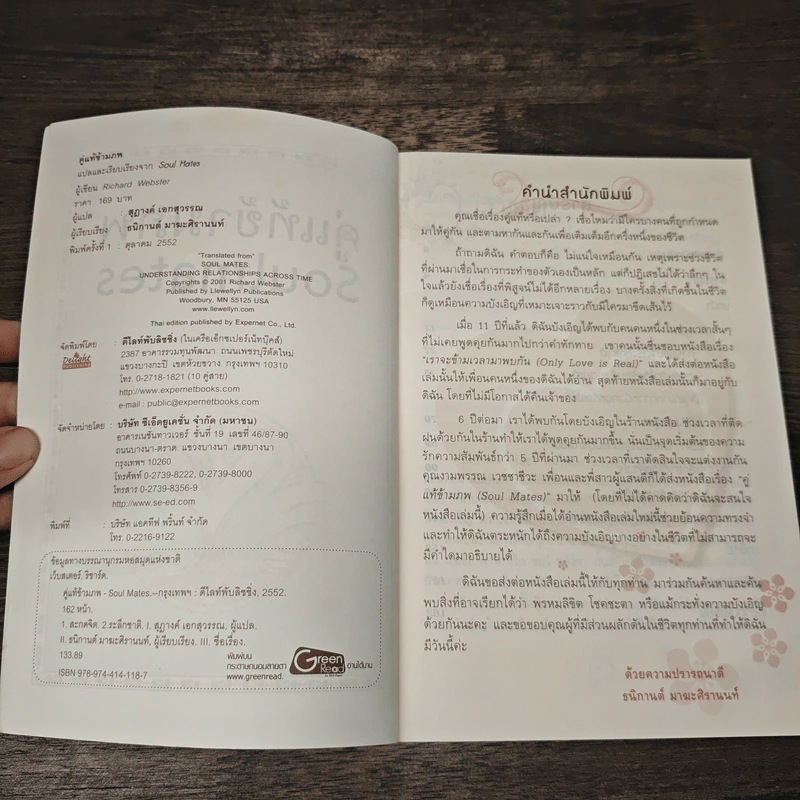 คู่แท้ข้ามภพ
แปลและเรียบเรียงจาก Soul Mates
ผู้เขียน Richard Webster
ราคา 169 บาท
ผู้แปล : สุฏางค์ เอกสุวรรณ
ผู้เรียบเรียง : ธนิกานต์ มาฆะศิรานนท์
พิมพ์ครั้งที่ 1 : ตุลาคม 2552
"Translated from"
SOUL MATES:
UNDERSTANDING RELATIONSHIPS ACROSS TIME
Copyrights © 2001 Richard Webster
Published by Llewellyn Publications
Woodbury, MN 55125 USA
www.llewellyn.com
Thai edition published by Expernet Co., Ltd.
จัดพิมพ์โดย : ดีไลท์พับลิชชิ่ง (ในเครือเอ็กซเปอร์เน็ทบุ๊คส์)
Delight
2387 อาคารรวมทุนพัฒนา ถนนเพชรบุรีตัดใหม่
แขวงบางกะปิ เขตห้วยขวาง กรุงเทพฯ 10310
โทร. 0-2718-1821 (10 คู่สาย)
http://www.expernetbooks.com
e-mail : public@expernetbooks.com
จัดจำหน่ายโดย : บริษัท ซีเอ็ดยูเคชั่น จำกัด (มหาชน)
อาคารเนชั่นทาวเวอร์ ชั้นที่ 19 เลขที่ 46/87-90
ถนนบางนา-ตราด แขวงบางนา เขตบางนา
กรุงเทพฯ 10260
โทรศัพท์ 0-2739-8222, 0-2739-8000
โทรสาร 0-2739-8356-9
http://www.se-ed.com
พิมพ์ที่ : บริษัท แอคทีฟ พริ้นท์ จำกัด
โทร. 0-2216-9122
ข้อมูลทางบรรณานุกรมหอสมุดแห่งชาติ
เว็บสเตอร์, ริชาร์ด.
คู่แท้ข้ามภพ - Soul Mates.--กรุงเทพฯ : ดีไลท์พับลิชชิ่ง, 2552.
162 หน้า.
1. สะกดจิต. 2.ระลึกชาติ. I. สุฏางค์ เอกสุวรรณ, ผู้แปล.
II. ธนิกานต์ มาฆะศิรานนท์, ผู้เรียบเรียง. III. ชื่อเรื่อง.
133.89
ISBN 978-974-414-118-7
พิมพ์บน
กระดาษถนอมสายตา
www.greenread.
Green Read
อ่านได้นาน
คำนำสำนักพิมพ์
คุณเชื่อเรื่องคู่แท้หรือเปล่า ? เชื่อไหมว่ามีใครบางคนที่ถูกกำหนด
มาให้คู่กัน และตามหากันและกันเพื่อเติมเต็มอีกครึ่งหนึ่งของชีวิต
ถ้าถามดิฉัน คำตอบก็คือ ไม่แน่ใจเหมือนกัน เหตุเพราะช่วงชีวิต
ที่ผ่านมาเชื่อในการกระทำของตัวเองเป็นหลัก แต่ก็ปฏิเสธไม่ได้ว่าลึกๆ ใน
ใจแล้วยังเชื่อเรื่องที่พิสูจน์ไม่ได้อีกหลายเรื่อง บางครั้งสิ่งที่เกิดขึ้นในชีวิต
ก็ดูเหมือนความบังเอิญที่เหมาะเจาะราวกับมีใครมาขีดเส้นไว้
เมื่อ 11 ปีที่แล้ว ดิฉันบังเอิญได้พบกับคนคนหนึ่งในช่วงเวลาสั้นๆ
ที่ไม่เคยพูดคุยกันมากไปกว่าคำทักทาย เขาคนนั้นชื่นชอบหนังสือเรื่อง
"เราจะข้ามเวลามาพบกัน (Only Love is Real)" และได้ส่งต่อหนังสือ
เล่มนั้นให้เพื่อนคนหนึ่งของดิฉันได้อ่าน สุดท้ายหนังสือเล่มนั้นก็มาอยู่กับ
ดิฉัน โดยที่ไม่มีโอกาสได้คืนเจ้าของ
6 ปีต่อมา เราได้พบกันโดยบังเอิญในร้านหนังสือ ช่วงเวลาที่ติด
ฝนด้วยกันในร้านทำให้เราได้พูดคุยกันมากขึ้น นับเป็นจุดเริ่มต้นของความ
รักความสัมพันธ์กว่า 5 ปีที่ผ่านมา ช่วงเวลาที่เราตัดสินใจจะแต่งงานกัน
คุณงามพรรณ เวชชาชีวะ เพื่อนและพี่สาวผู้แสนดีก็ได้ส่งหนังสือเรื่อง "คู่
แท้ข้ามภพ (Soul Mates)" มาให้ (โดยที่ไม่ได้คาดคิดว่าดิฉันจะสนใจ
หนังสือเล่มนี้) ความรู้สึกเมื่อได้อ่านหนังสือเล่มใหม่นี้ช่วยย้อนความทรงจำ
และทำให้ดิฉันตระหนักได้ถึงความบังเอิญบางอย่างในชีวิตที่ไม่สามารถจะ
มีคำใดมาอธิบายได้
ดิฉันขอส่งต่อหนังสือเล่มนี้ให้กับทุกท่าน มาร่วมกันค้นหาและค้น
พบสิ่งที่อาจเรียกได้ว่า พรหมลิขิต โชคชะตา หรือแม้กระทั่งความบังเอิญ
ด้วยกันนะคะ และขอขอบคุณผู้ที่มีส่วนผลักดันในชีวิตทุกท่านที่ทำให้ดิฉัน
มีวันนี้ค่ะ
ด้วยความปรารถนาดี
ธนิกานต์ มาฆะศิรานนท์